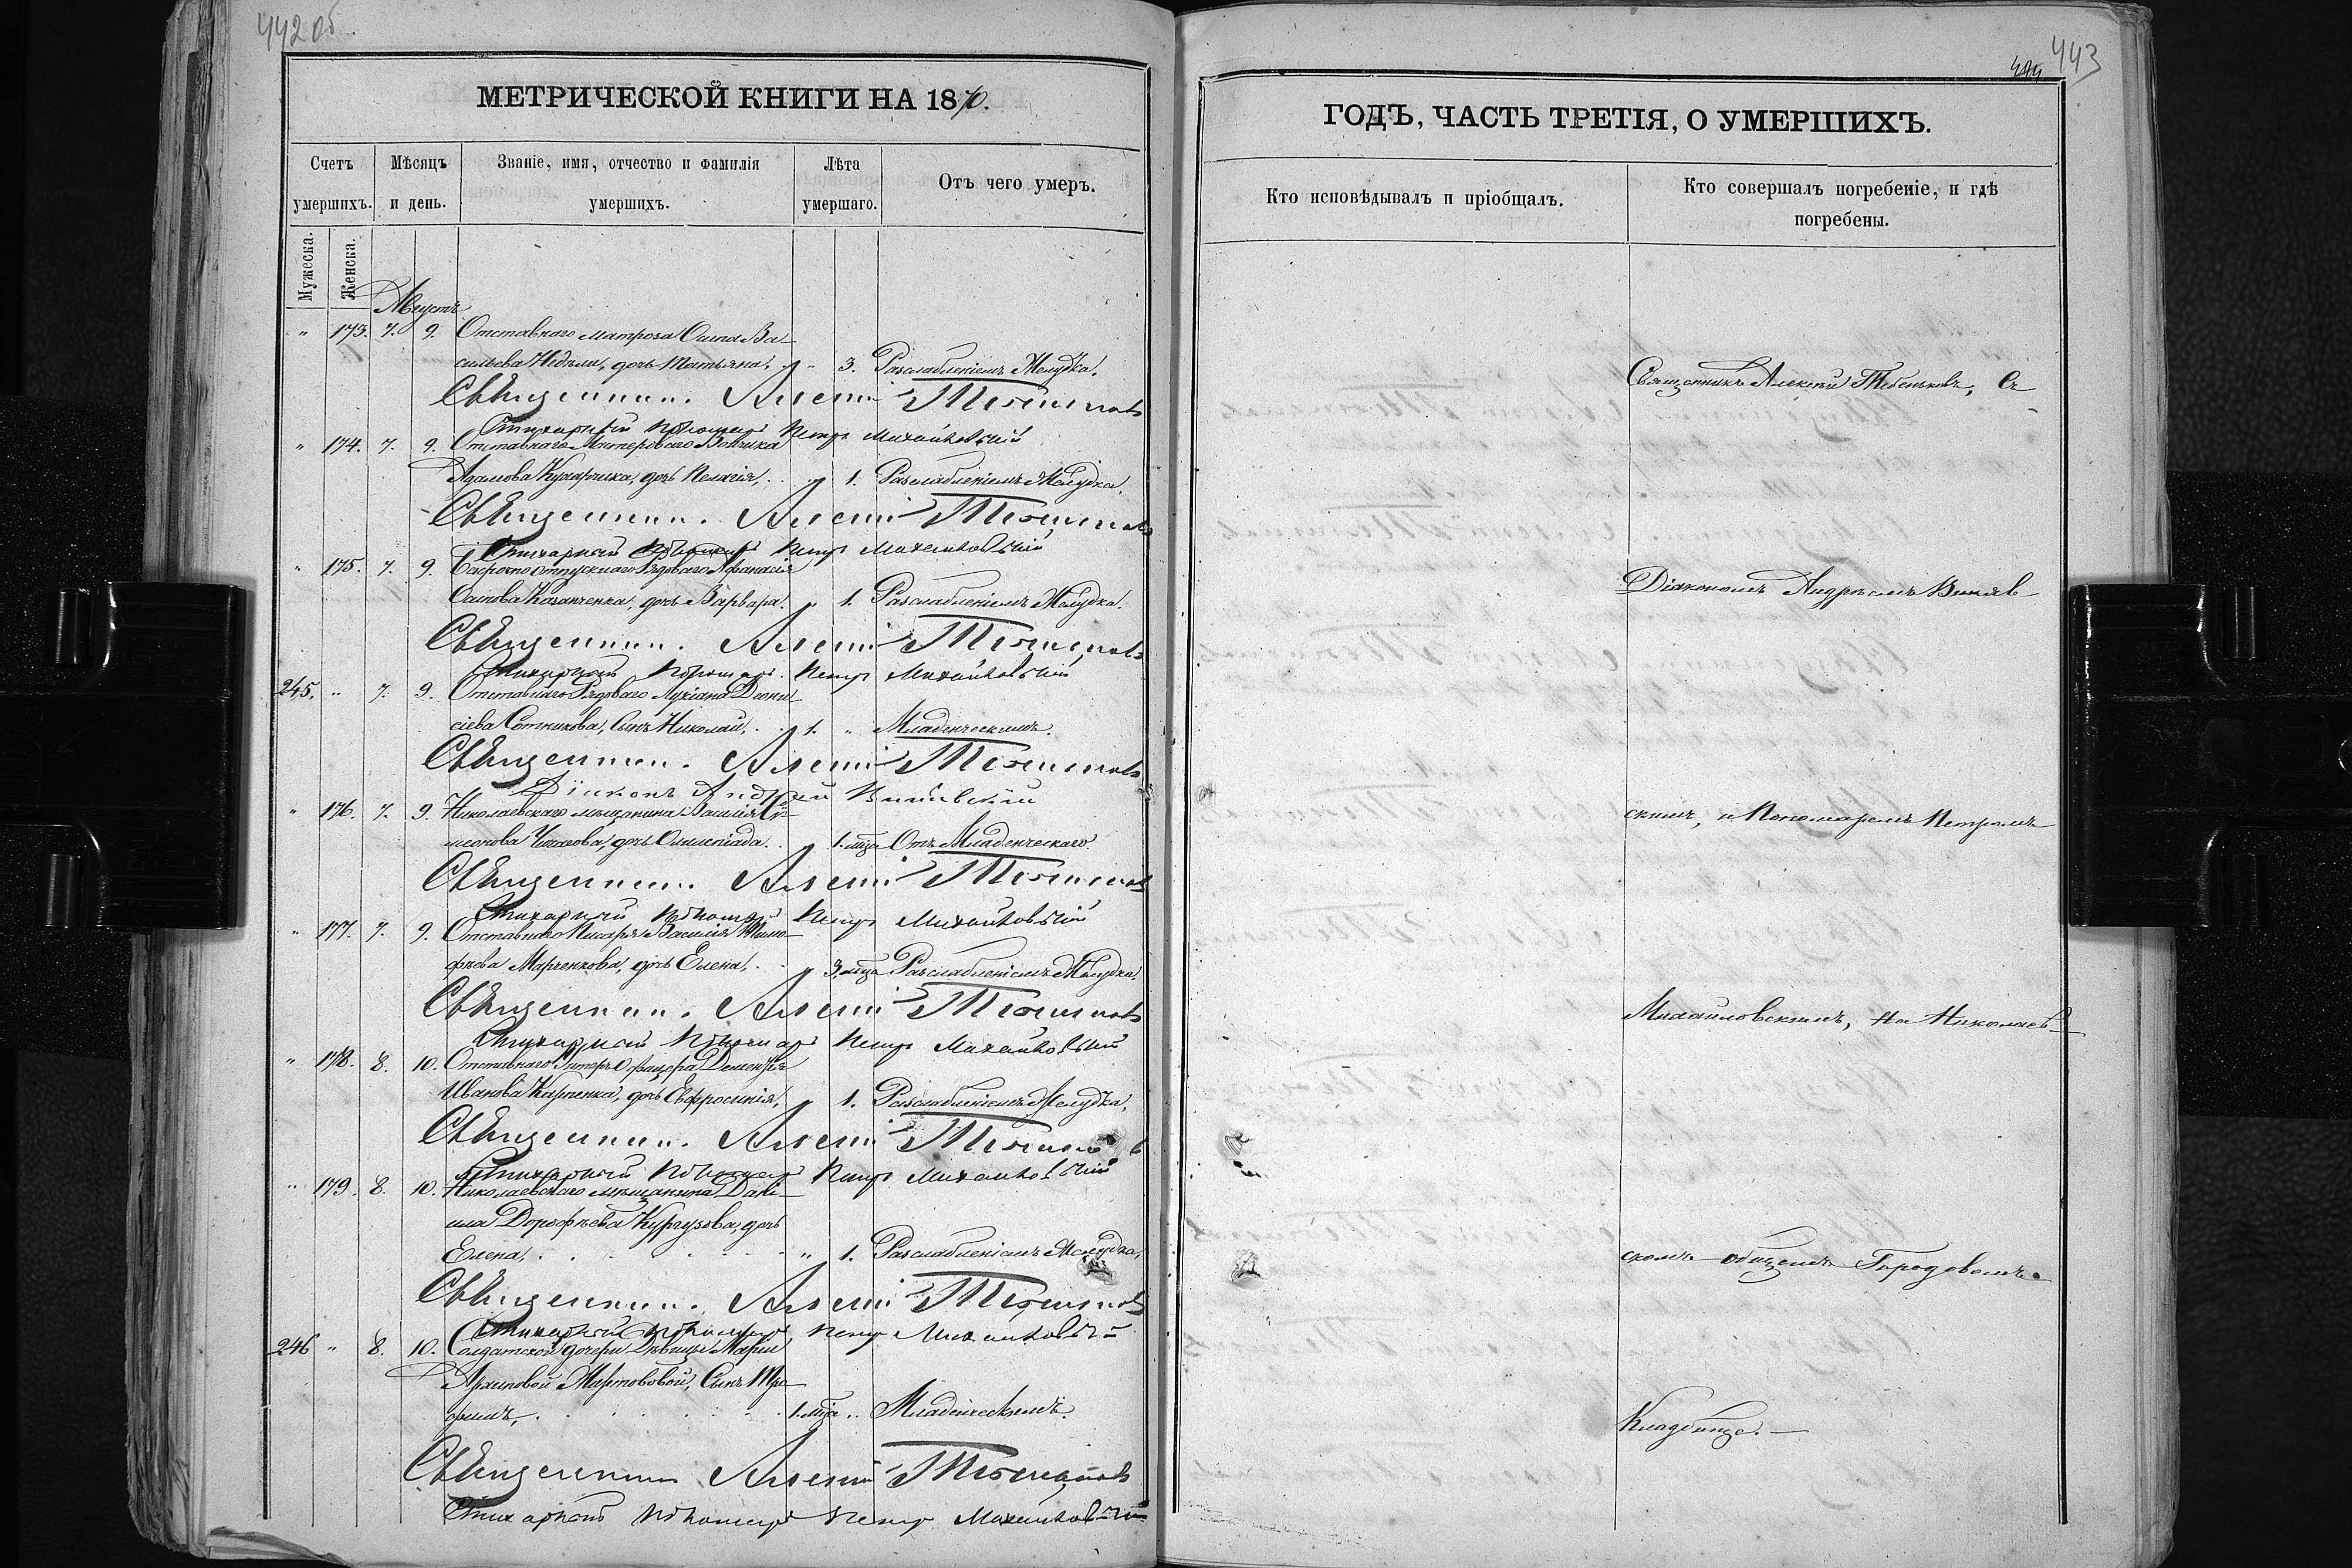 442 об
МЕТРИЧЕСКОЙ КНИГИ НА 1870.
Счетъ умершихъ.
Мѣсяцъ и день.
Званіе, имя, отчество и фамилія умершихъ.
Лѣта умершаго.
Отъ чего умеръ.
Мужеска.
Женска.
Августъ
" 173. 7. 9. Отставнаго матроза Осипа Ва-
сильева Недѣли, дочь Татьяна. " 3. Разслабленіемъ Желудка.
Священник Алексѣй Тебеньковъ
Стихарный Пономарь Петръ Михайловскій
" 174. 7. 9. Отставнаго
Адамова Кушнарика, дочь Пелагія, 1. Разслабленіемъ Желудка.
Священник Алексѣй Тебеньковъ
Стихарный Пономарь Петръ Михайловскій
" 175. 7. 9. Безсрочно отпускнаго Рядоваго Афанасія
Осипова Казанченка, дочь Варвара. " 1. Разслабленіемъ Желудка.
Священник Алексѣй Тебеньковъ
Стихарный Пономарь Петръ Михайловскій
245. " 7. 9. Отставнаго Рядоваго Лукіана Діони-
сіева Сотникова, Сынъ Николай, 1. " Младенческимъ.
Священник Алексѣй Тебеньковъ
Діаконъ Андрей Виневскій
" 176. 7. 9. Николаевскаго мѣщанина Василія Си-
меонова дочь Олимпіада. 1. мца Отъ Младенческаго.
Священник Алексѣй Тебеньковъ
Стихарный Пономарь Петръ Михайловскій
" 177. 7. 9. Отставнаго Писаря Василія Тимо-
фѣева Марченкова, дочь Елена, 3. мца Разслабленіемъ Желудка.
Священник Алексѣй Тебеньковъ
Стихарный Пономарь Петръ Михайловскій
" 178. 8. 10. Отставнаго Унтеръ Офицера Дементія
Иванова Карпенка, дочь Евфросинія, 1. Разслабленіемъ Желудка.
Священник Алексѣй Тебеньковъ
Стихарный Пономарь Петръ Михайловскій
" 179. 8. 10. Николаевскаго мѣщанина Дані-
ила Дорофѣева Кургузова, дочь
Елена, " 1. Разслабленіемъ Желудка,
Священник Алексѣй Тебеньковъ
Стихарный Пономарь Петръ Михайловскій
246 " 8. 10. Солдатской дочери Дѣвицы Маріи
Архиповой Сынъ Тро-
фимъ, 1. мца " Младенческимъ.
Священник Алексѣй Тебеньковъ
Стихарный Пономарь Петръ Михайловскій
443
ГОДЪ, ЧАСТЬ ТРЕТІЯ, О УМЕРШИХЪ.
Кто исповѣдывалъ и пріобщалъ.
Кто совершалъ погребеніе, и гдѣ
погребены.
Священникъ Алексѣй Тебеньковъ, Съ
Діакономъ Андреемъ Винев-
скимъ, и Пономаремъ Петромъ
Михайловскимъ, На Николаев-
скомъ общемъ Городовомъ
Кладбище.